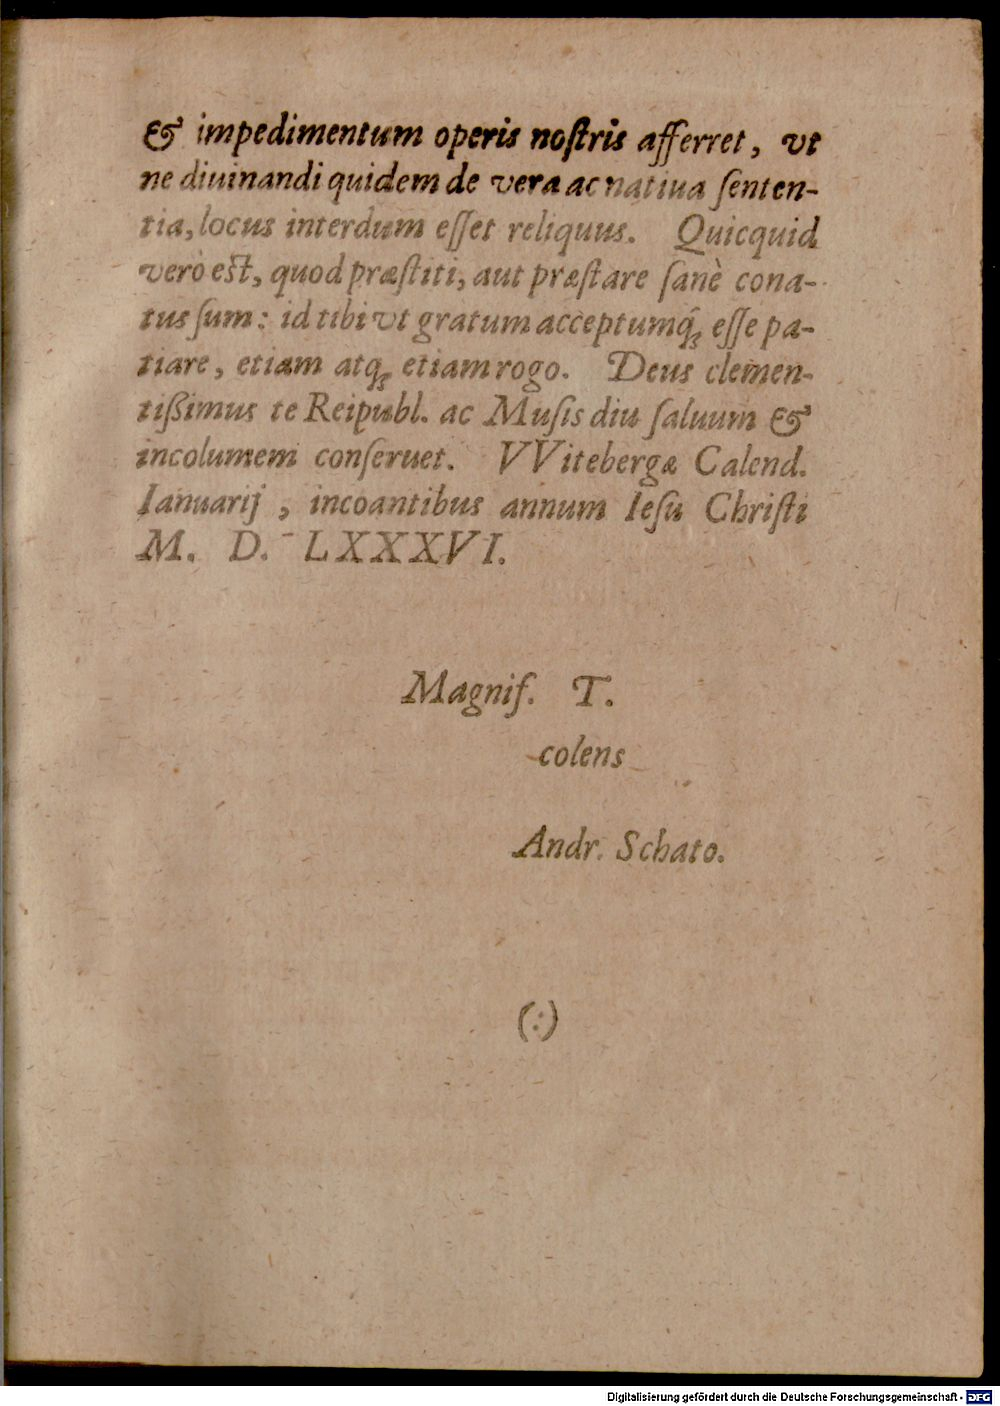 & impedimentum operis noſtris afferret, vt
ne diuinandi quidem de vera ac natiua ſenten-
tia, locus interdum eſſet reliquus. Quicquid
verò eſt, quod præſtiti, aut præſtare ſanè cona-
tus ſum: id tibi vt gratum acceptumq́; eſſe pa-
tiare, etiam atq; etiam rogo. Deus clemen-
tißimus te Reipubl. ac Muſis diu ſaluum &
incolumem conſeruet. VVitebergæ Calend.
Ianuarij, incoantibus annum Ieſu Chriſti
M. D. LXXXVI.
Magnif. T.
colens
Andr. Schato.
(:)
Digitalisierung gefördert durch die Deutsche Forschungsgemeinschaft - DFG